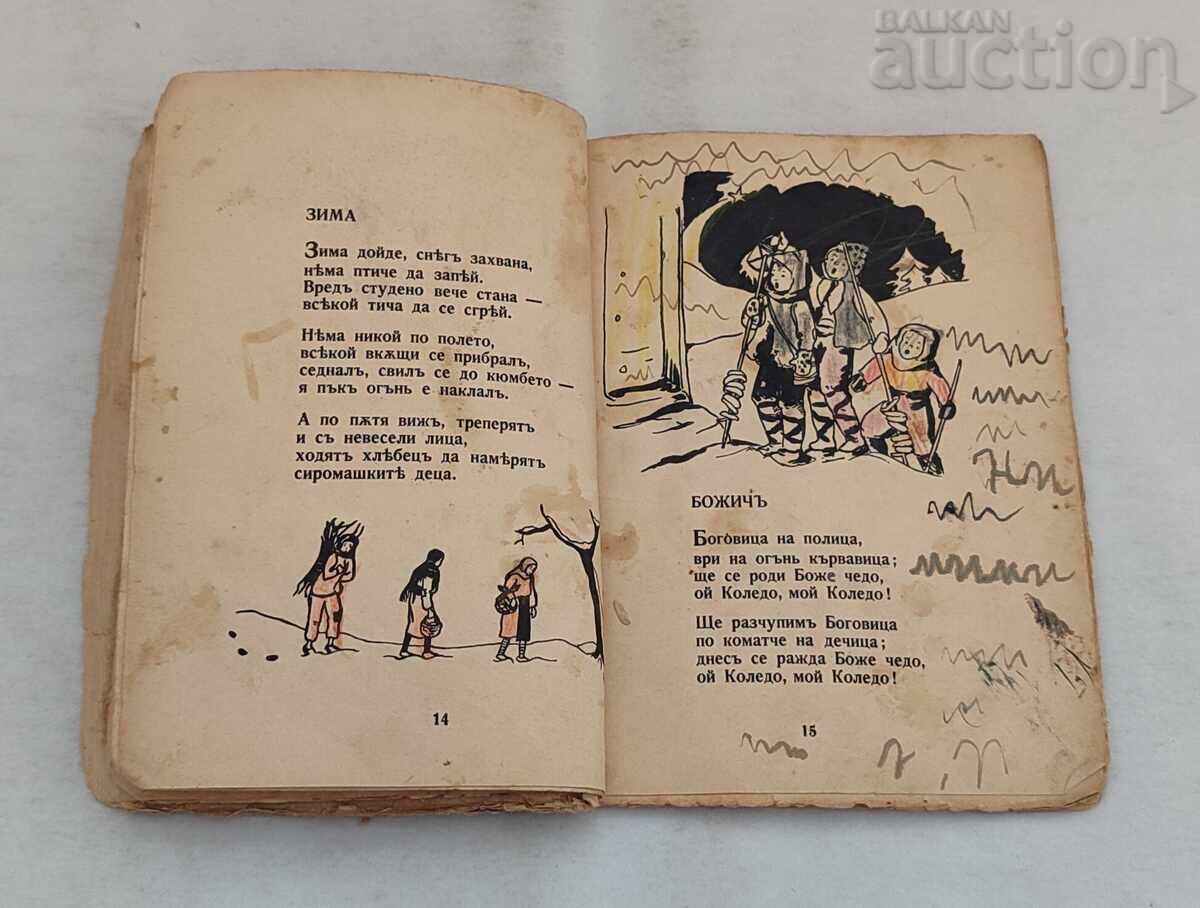 BALKAN
auction
ЗИМА
Зима дойде, снѣгъ захвана,
нѣма птиче да запѣй.
Вредъ студено вече стана —
всѣкой тича да се сгрѣй.
Нѣма никой по полето,
всѣкой вкѫщи се прибралъ,
седналъ, свилъ се до кюмбето —
я пъкъ огънь е наклалъ.
А по пѫтя вижъ, треперятъ
и съ невесели лица,
ходятъ хлѣбецъ да намѣрятъ
сиромашкитѣ деца.
14
БОЖИЧЪ
Боговица на полица,
ври на огънь кървавица;
ще се роди Боже чедо,
ой Коледо, мой Коледо!
Ще разчупимъ Боговица
по коматче на дечица;
днесъ се ражда Боже чедо,
ой Коледо, мой Коледо!
15